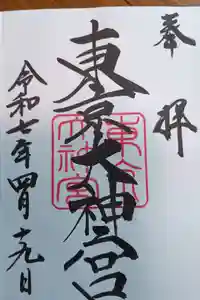 奉拝
東京大神宮
東京大神宮
令和七年四月十九日